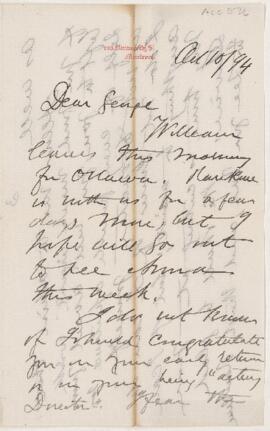 Oct 10/94
Dear George
William
leaves this morning
for Ottawa.
is with us for a few
days more, but I
hope will go out
to see Anna
this week.
I do not know
if I should congratulate
you on your early return
or on your being "acting
Director".